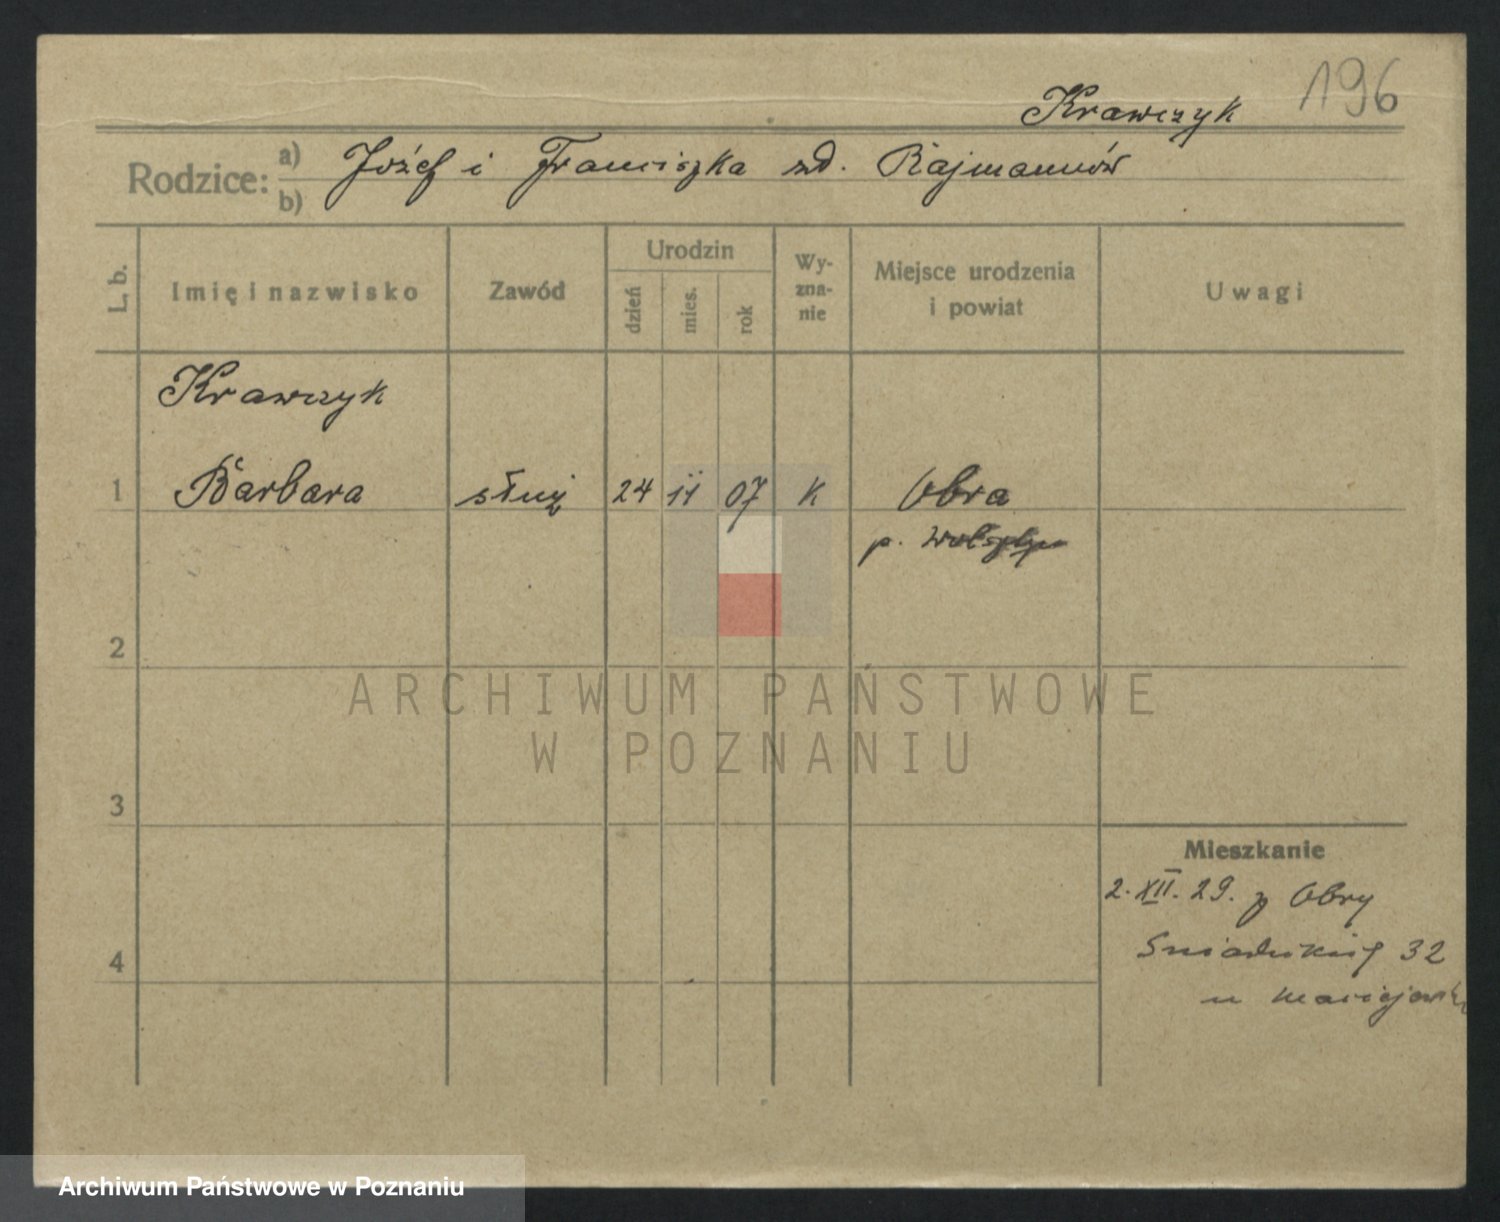 196
Krawczyk
Rodzice: a) Józef i Franciszka zd. Rajmannów
b)
L. b.
Imię i nazwisko
Zawód
Urodzin
dzień
mies.
rok
Wy-
zna-
nie
Miejsce urodzenia
i powiat
Uwagi
Krawczyk
1 Barbara służ 24 11 07 K Obra
p.
2
3
4
Mieszkanie
2. XII. 29. z Obry
32
u
ARCHIWUM PAŃSTWOWE
W POZNANIU
Archiwum Państwowe w Poznaniu